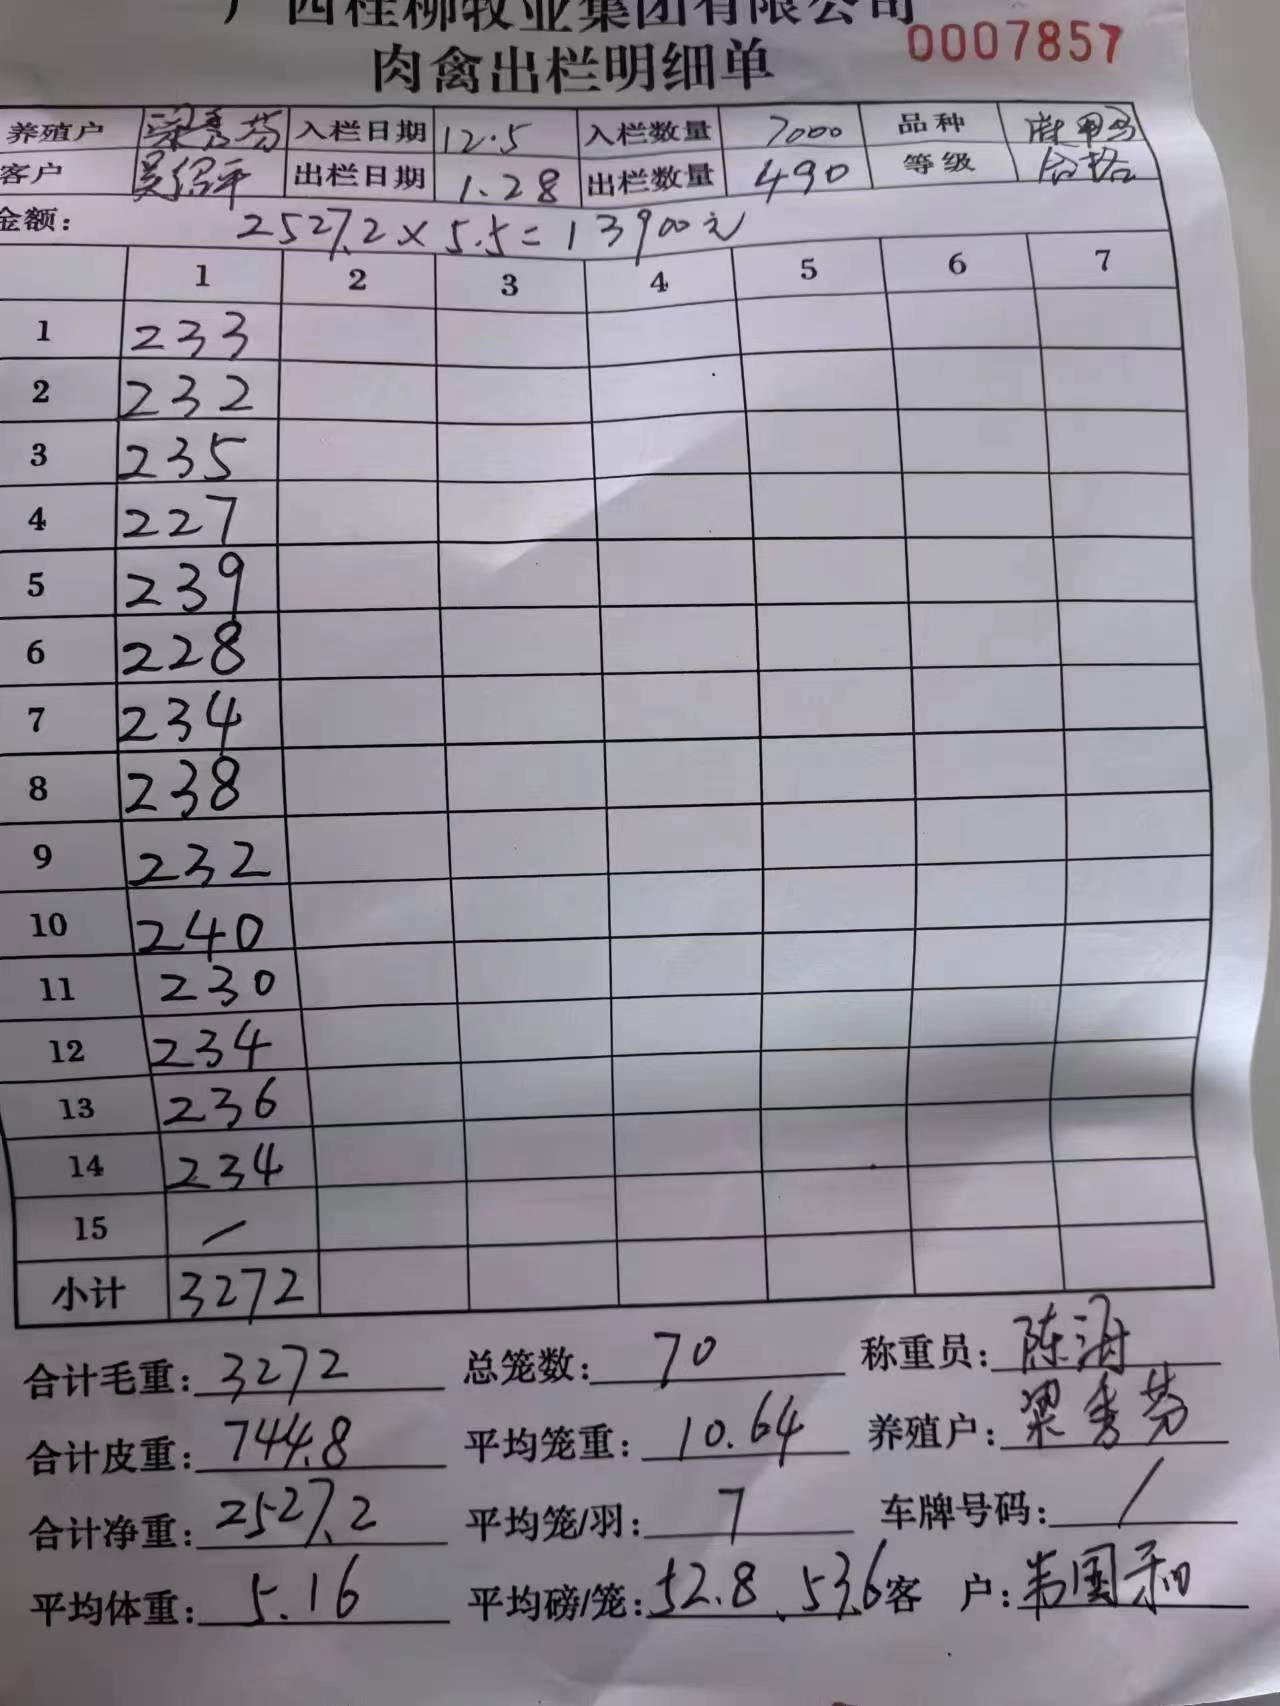 广西桂柳牧业集团有限公司
肉禽出栏明细单 0007857
养殖户 梁秀芬 入栏日期 12.5 入栏数量 7000 品种
客户 吴绍平 出栏日期 1.28 出栏数量 490 等级 合格
金额: 2527.2×5.5=13900元
1 2 3 4 5 6 7
1 233
2 232
3 235
4 227
5 239
6 228
7 234
8 238
9 232
10 240
11 230
12 234
13 236
14 234
15 /
小计 3272
合计毛重: 3272 总笼数: 70 称重员: 陈海
合计皮重: 744.8 平均笼重: 10.64 养殖户: 梁秀芬
合计净重: 2527.2 平均笼/羽: 7 车牌号码: /
平均体重: 5.16 平均磅/笼: 52.8、53.6 客户: 韦国和